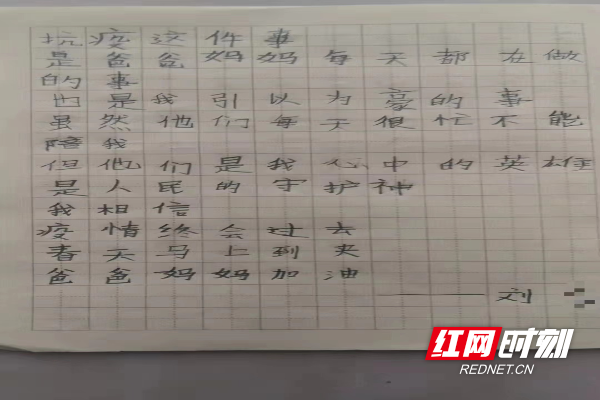 抗疫这件事
是爸爸妈妈每天都在做
的事
也是我引以为豪的事
虽然他们每天很忙不能
陪我
但他们是我心中的英雄
是人民的守护神
我相信
疫情终会过去
春天马上到夹
爸爸妈妈加油
——刘
红网时刻
REDNET.CN